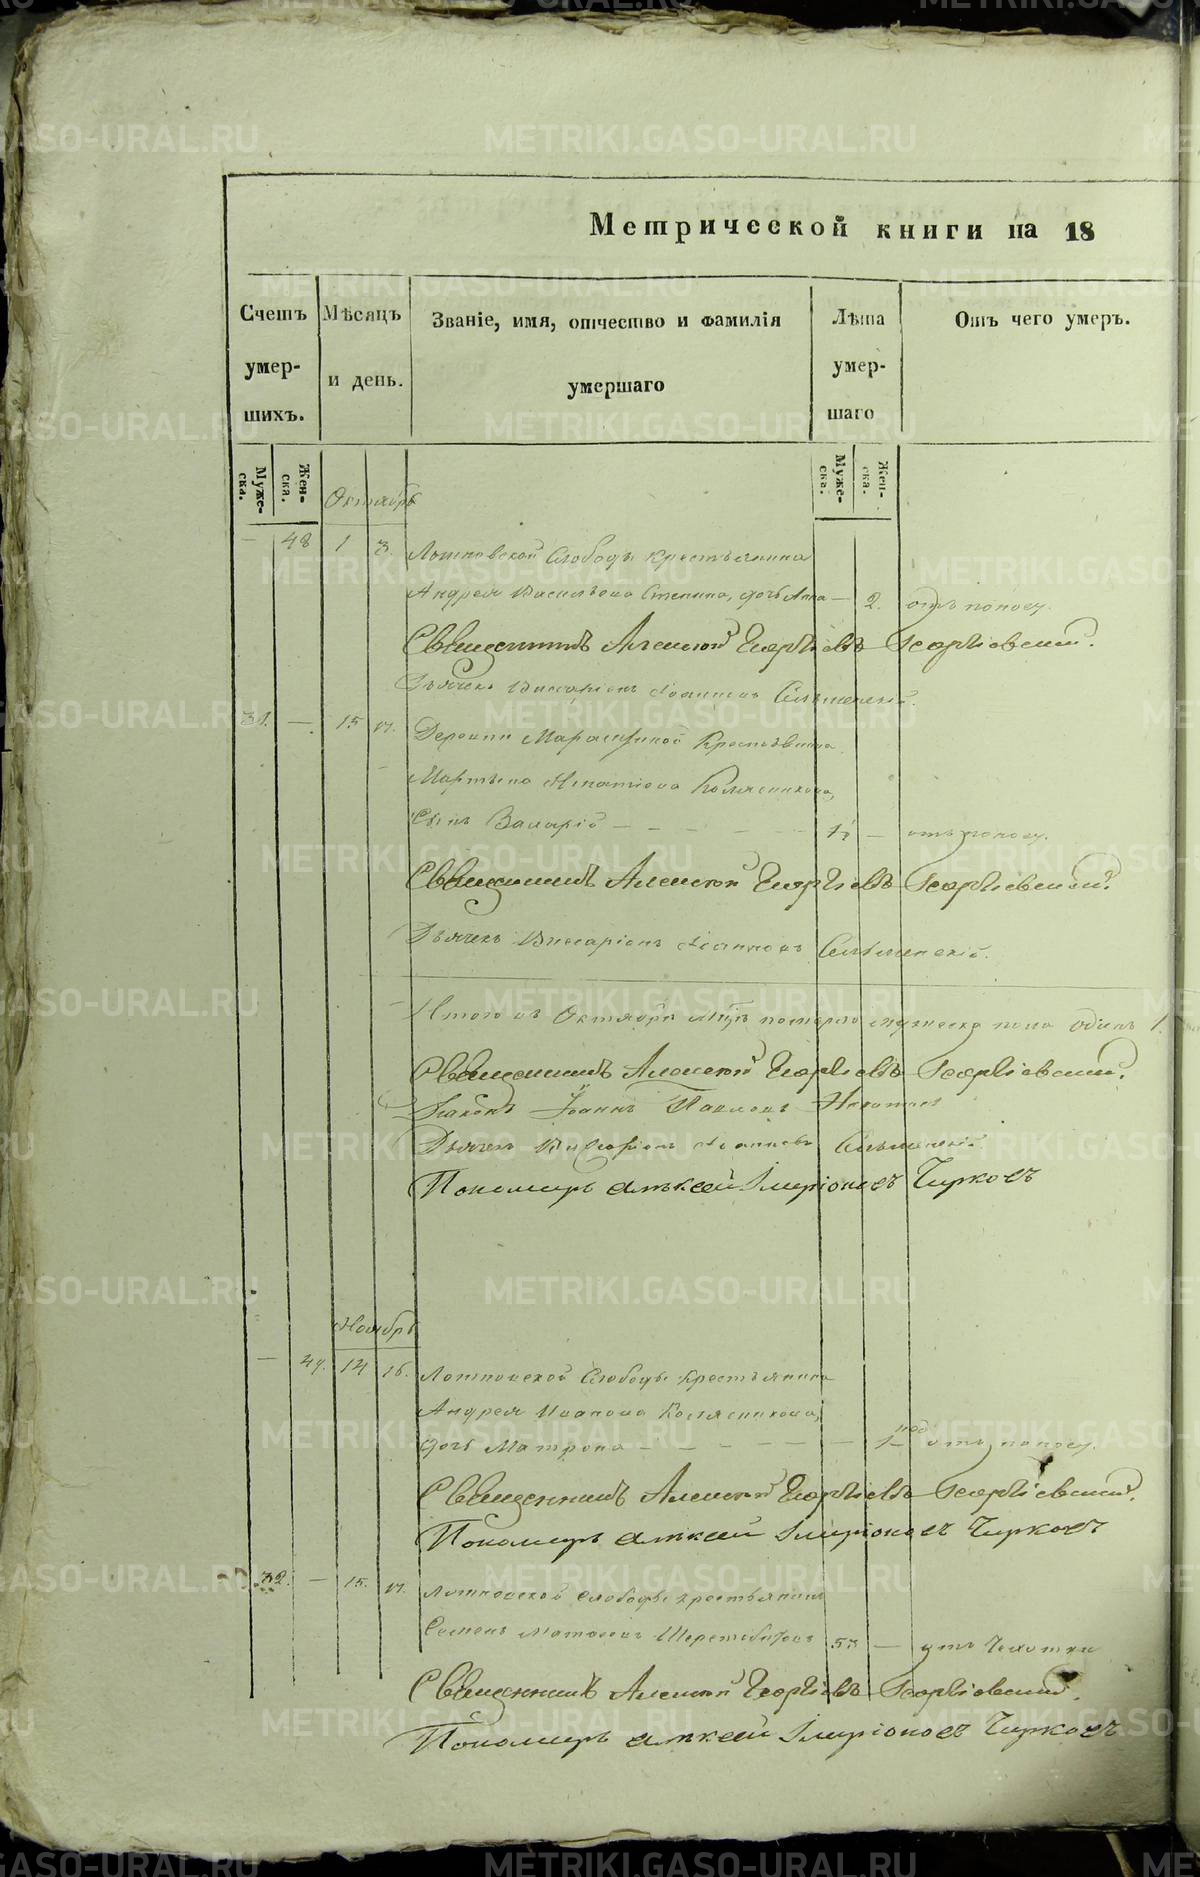 Метрической книги на 18
Счетъ умер-шихъ.
Мѣсяцъ и день.
Званіе, имя, отчество и фамилія умершаго
Лѣта умер-шаго
Отъ чего умеръ.
Муже-ска.
Жен-ска.
Муже-ска.
Жен-ска.
Октябрь
— 48 1 3. Слободы крестьянина
Андрея Васильева дочь Анна — 2. отъ поносу.
Священникъ Алексій Георгіевъ Георгіевскій.
Дьячекъ Виссаріонъ Іоанновъ
31. — 15 17. Деревни крестьянина
Мартына Игнатьева Колясникова,
Сынъ Валерій — — отъ поносу.
Священникъ Алексій Георгіевъ Георгіевскій.
Дьячекъ Виссаріонъ Іоанновъ
Итого въ Октябрѣ мцѣ померло мужеска пола одинъ 1.
Священникъ Алексій Георгіевъ Георгіевскій.
Діаконъ Іоаннъ Павловъ
Дьячекъ Виссаріонъ Іоанновъ
Пономарь Алексѣй Иларіоновъ Чирковъ
Ноябрь
— 49. 14 16. Слободы крестьянина
Андрея Иванова Колясникова,
дочь Матрона — — отъ поносу.
Священникъ Алексій Георгіевъ Георгіевскій.
Пономарь Алексѣй Иларіоновъ Чирковъ
32. — 15. 17. слободы крестьянинъ
Семенъ 53 — отъ чахотки
Священникъ Алексій Георгіевъ Георгіевскій.
Пономарь Алексѣй Иларіоновъ Чирковъ
METRIKI.GASO-URAL.RU